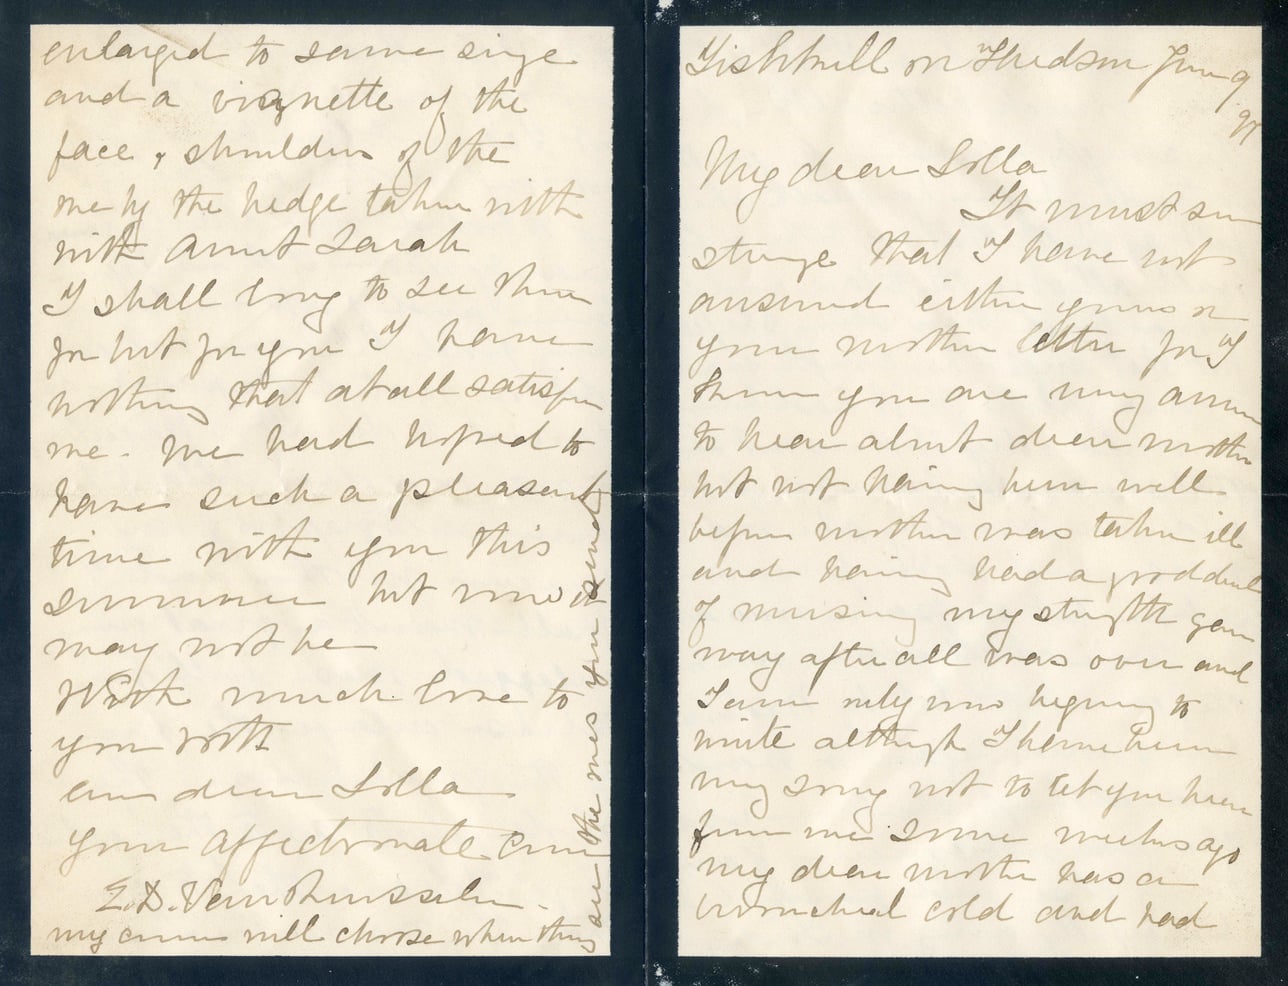 Fishkill on Hudson June 9
97
My dear Lolla
It must seem
strange that I have not
answered either yours or
your mother letter for I
know you are very anxious
to hear about dear mother
but not having been well
before mother was taken ill
and having had a good deal
of nursing my strength gave
way after all was over and
I am only now begining to
write although I have been
very sorry not to let you hear
from me some weeks ago
my dear mother has a
bronchial cold and had
enlarged to same size
and a vignette of the
face & shoulders of the
one by the hedge taken with
with Aunt Sarah
I shall long to see them
for but for you I have
nothing that at all satisfies
me. We had hoped to
have such a pleasant
time with you this
summer but now it
may not be
With much love to
you both
dear Lolla
Your affectionate
E. D. Van Rensselaer.
my will choose when they
see the ones you send